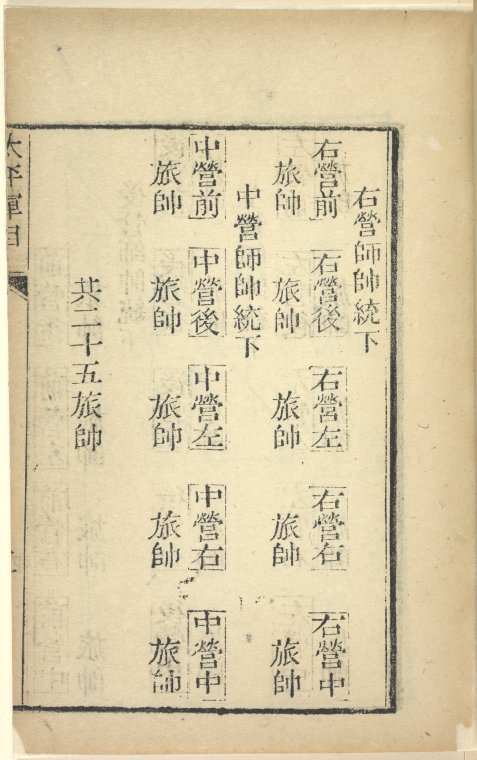 右營師帥統下
右營前 右營後 右營左 右營右 右營中
旅帥 旅帥 旅帥 旅帥 旅帥
中營師帥統下
中營前 中營後 中營左 中營右 中營中
旅帥 旅帥 旅帥 旅帥 旅帥
共二十五旅帥
太平軍目